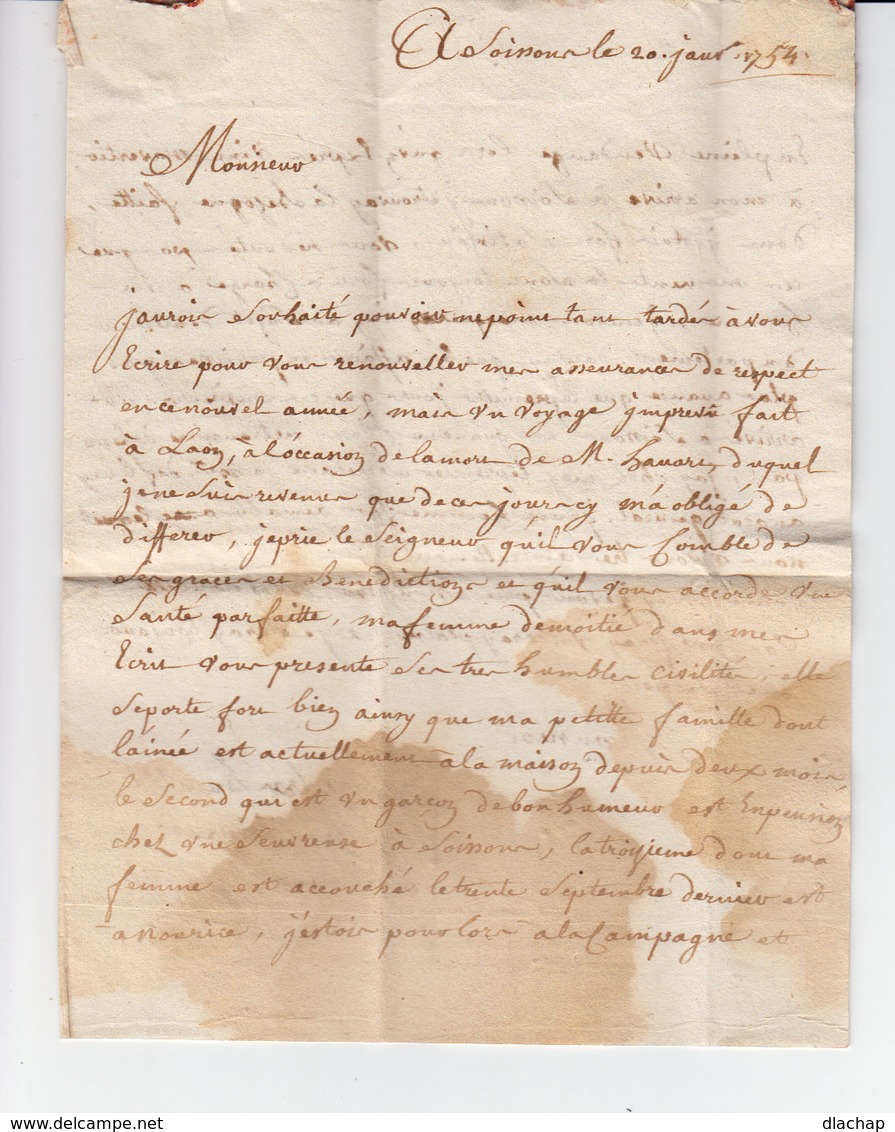 A Soissons le 20. janv. 1754.
Monsieur
j'aurois Souhaité pouvoir ne point tant tardés à vous
Ecrire pour vous renouveller mes asseurances de respect
en ce nouvel année, mais un voyage jmpreveu fait
à Laon, à l'occasion de la mort de M. havart, duquel
je ne Suis revenus que de ces jours cy m'a obligé de
differer, je prie le Seigneur qu'il vous Comble de
Ses graces et Benedictions et qu'il vous accorde une
Santé parfaitte, ma femme de moitié dans mes
Ecrit vous presente Ses tres humbles civilités, elle
Se porte fort bien ainsy que ma petitte famille dont
l'ainée est actuellement à la maison depuis deux mois
le Second qui est un garçon de bon humeur est En pension
chez une Sevreuse à Soissons, la troisieme dont ma
femme est accouché le trente Septembre dernier est
a nourice, j'estois pour lors a la Campagne et
delcampe.net
dlachap